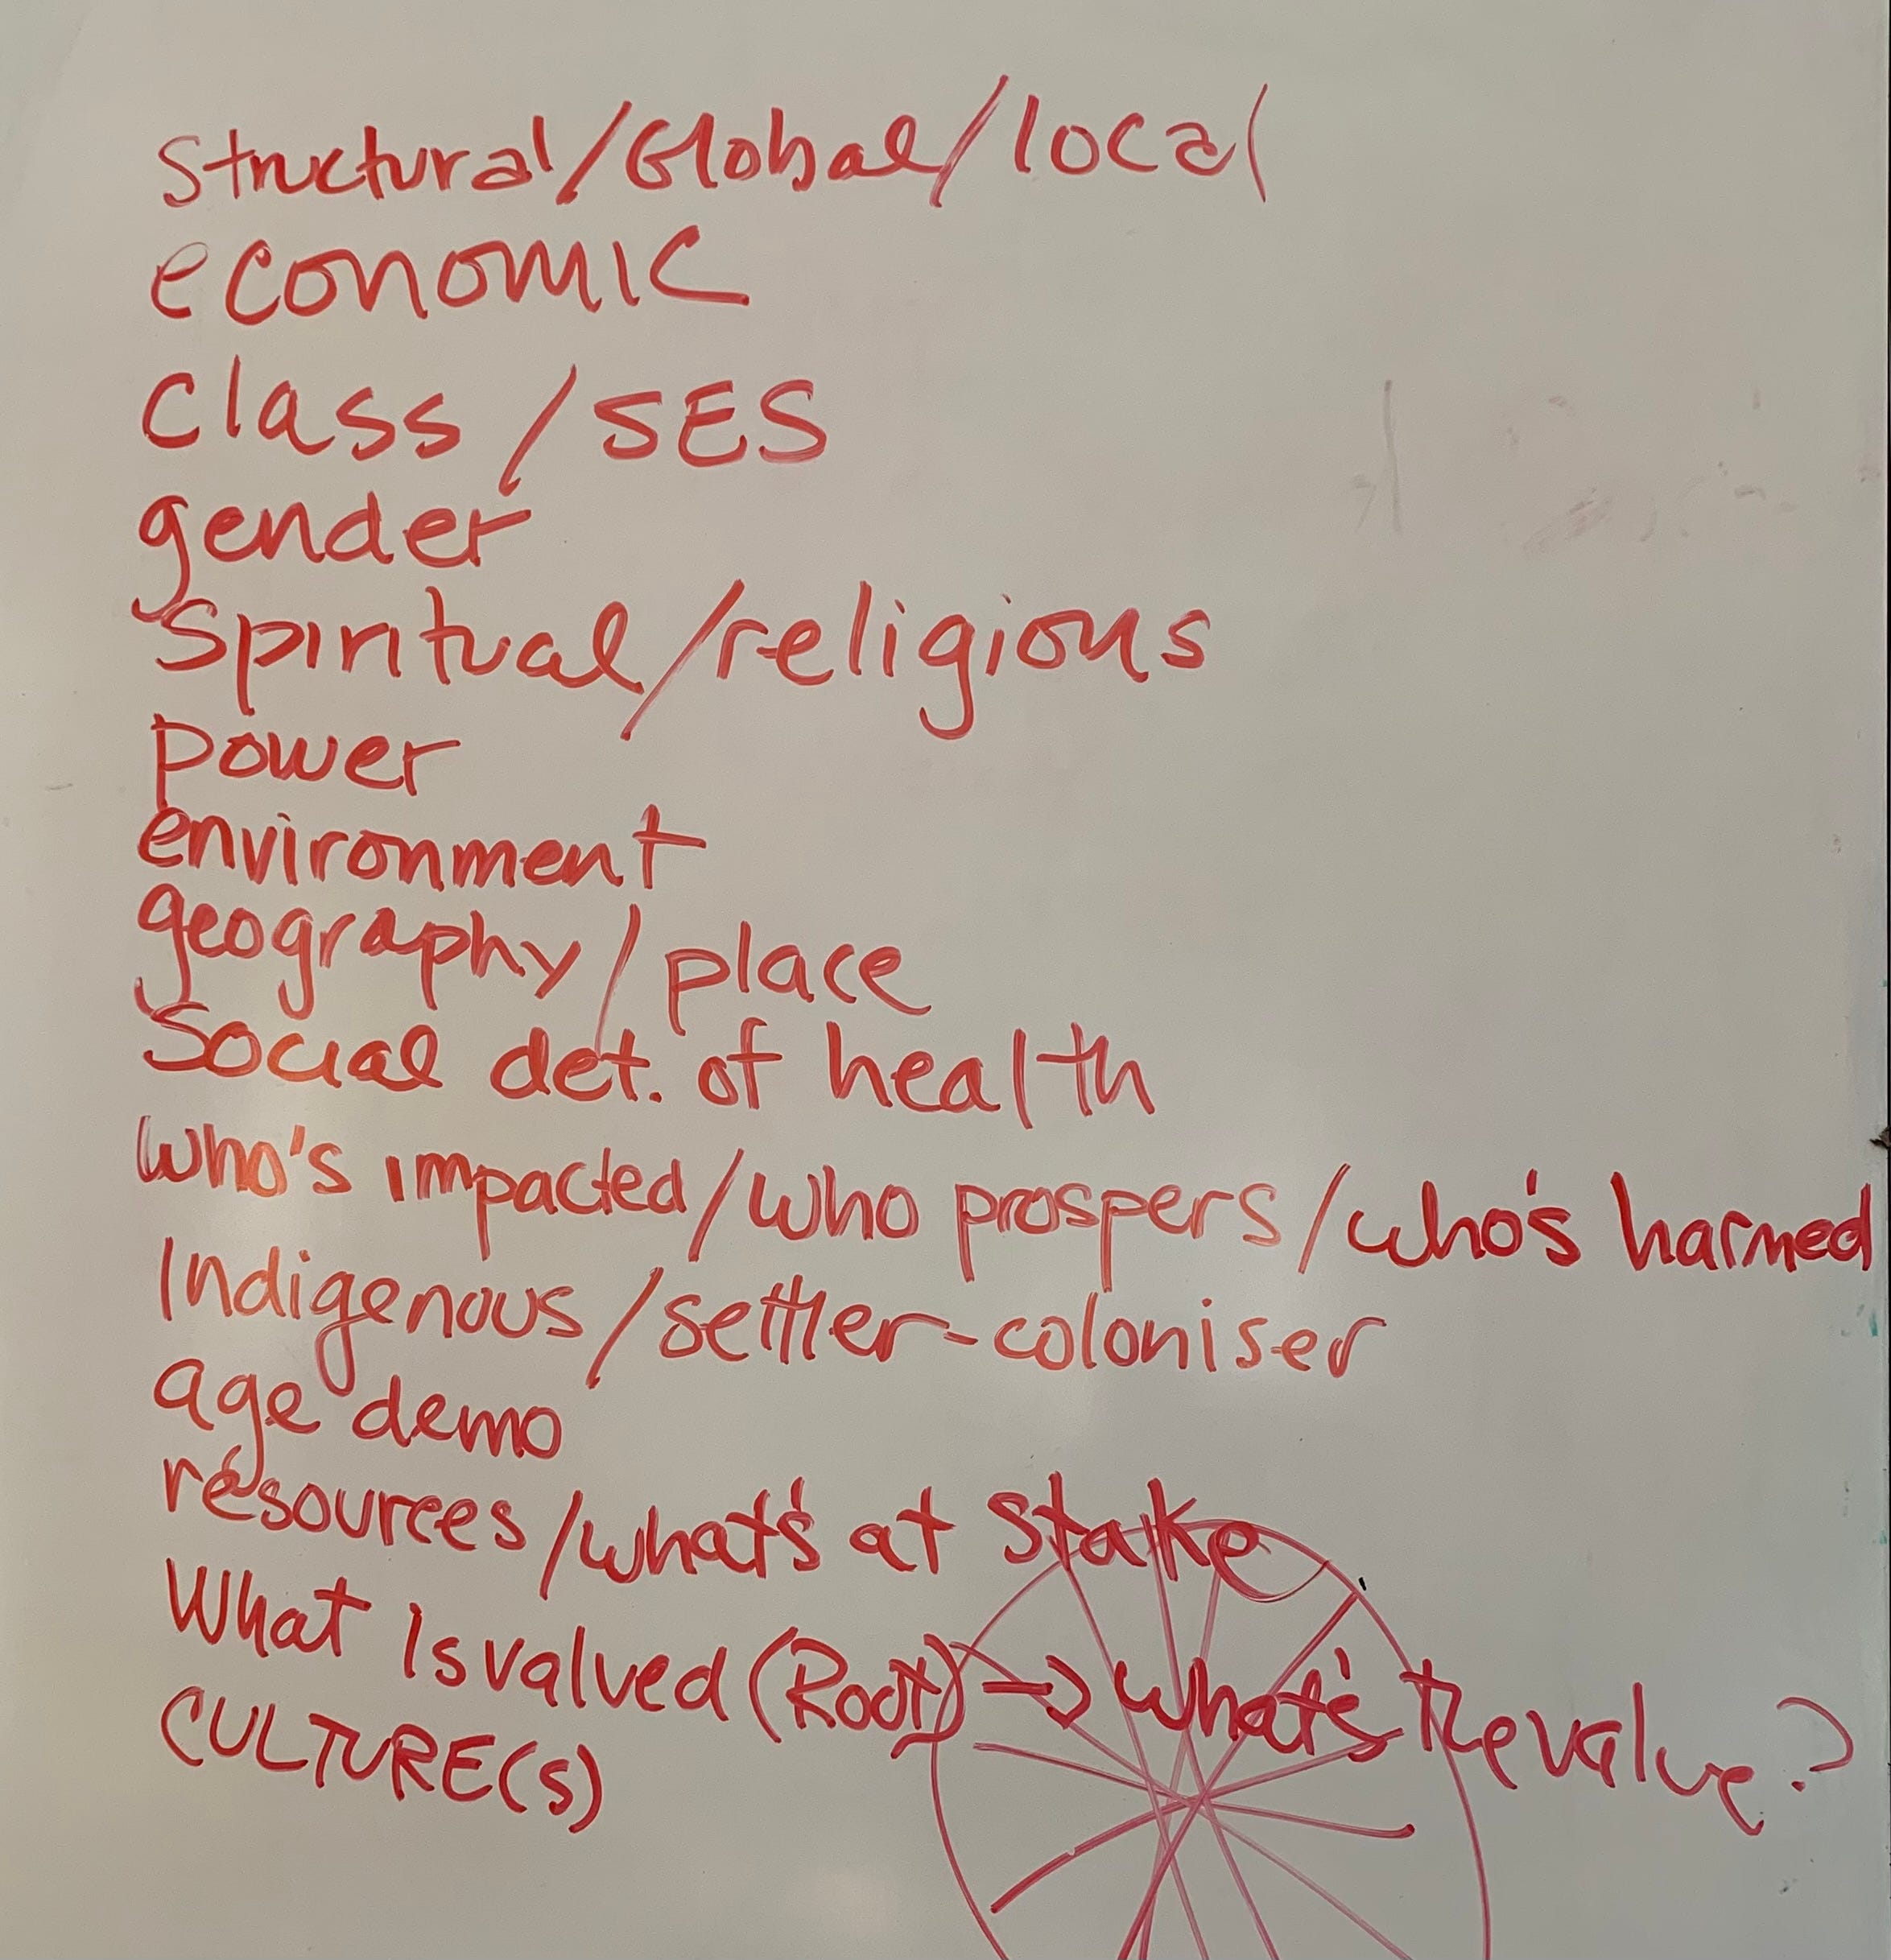 Structural/Global/local
economic
class/SES
gender
Spiritual/religious
power
environment
geography/place
Social det. of health
who's impacted/who prospers/who's harmed
Indigenous/settler-coloniser
age demo
resources/what's at stake
What Is valued (Root) → what's the value?
CULTURE(s)